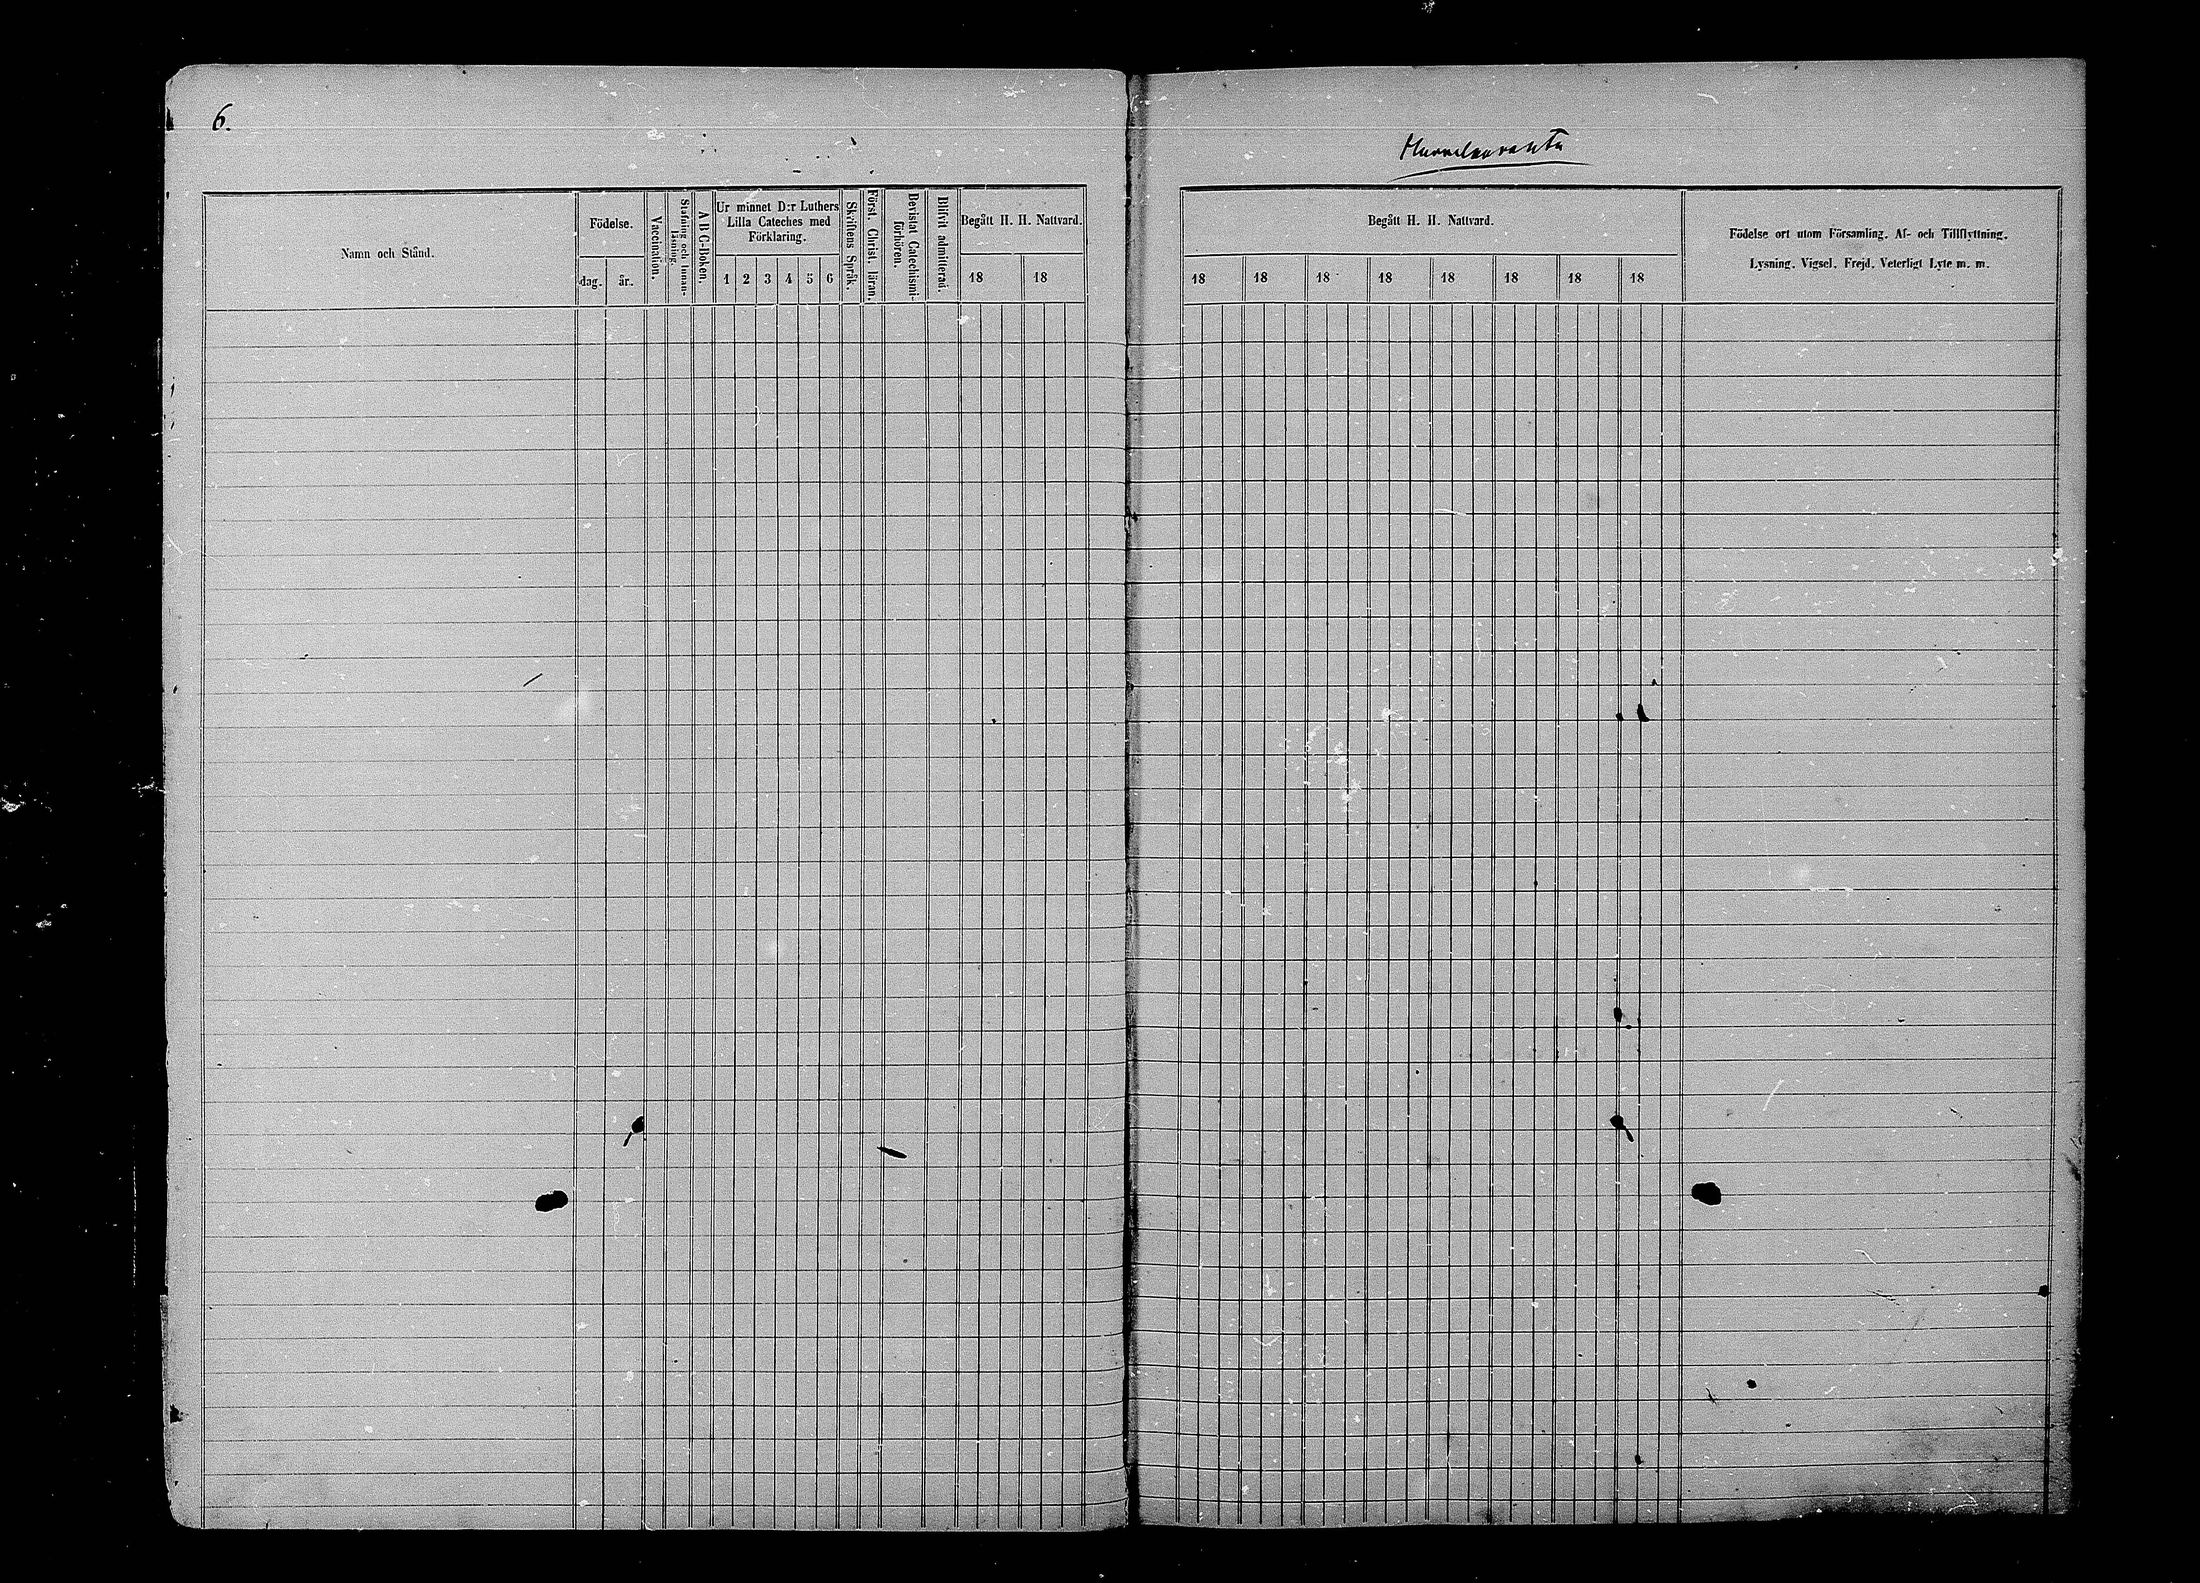 6.
Namn och Stånd.
Födelse.
dag.
år.
Vaccination.
Stafning och Innan-
läsning.
A-B-C-Boken.
Ur minnet D:r Luthers
Lilla Cateches med
Förklaring.
1 2 3 4 5 6
Skriftens Språk.
Först. Christ. läran.
Bevistat Catechismi-
förhören.
Blifvit admitterad.
Begått H. H. Nattvard.
18 18
Begått H. H. Nattvard.
18 18 18 18 18 18 18 18
Födelse ort utom Församling. Af- och Tillflyttning.
Lysning. Vigsel. Frejd. Veterligt Lyte m. m.